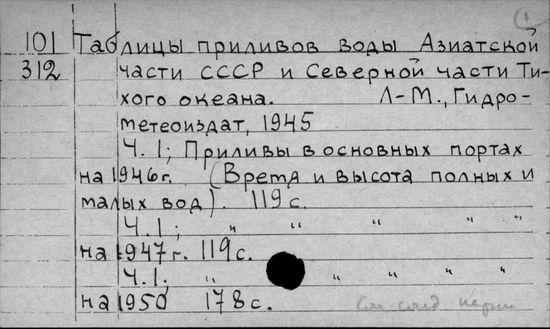 1
101 Таблицы приливов воды Азиатской
312 части СССР и Северной части Ти-
хого океана. Л-М., Гидро-
метеоиздат, 1945
Ч. 1; Приливы в основных портах
на 1946 г. (Время и высота полных и
малых вод). 119 с.
Ч. 1; " " " " "
на 1947 г. 119 с.
Ч. 1. " " " " "
на 1950 178 с.
См след